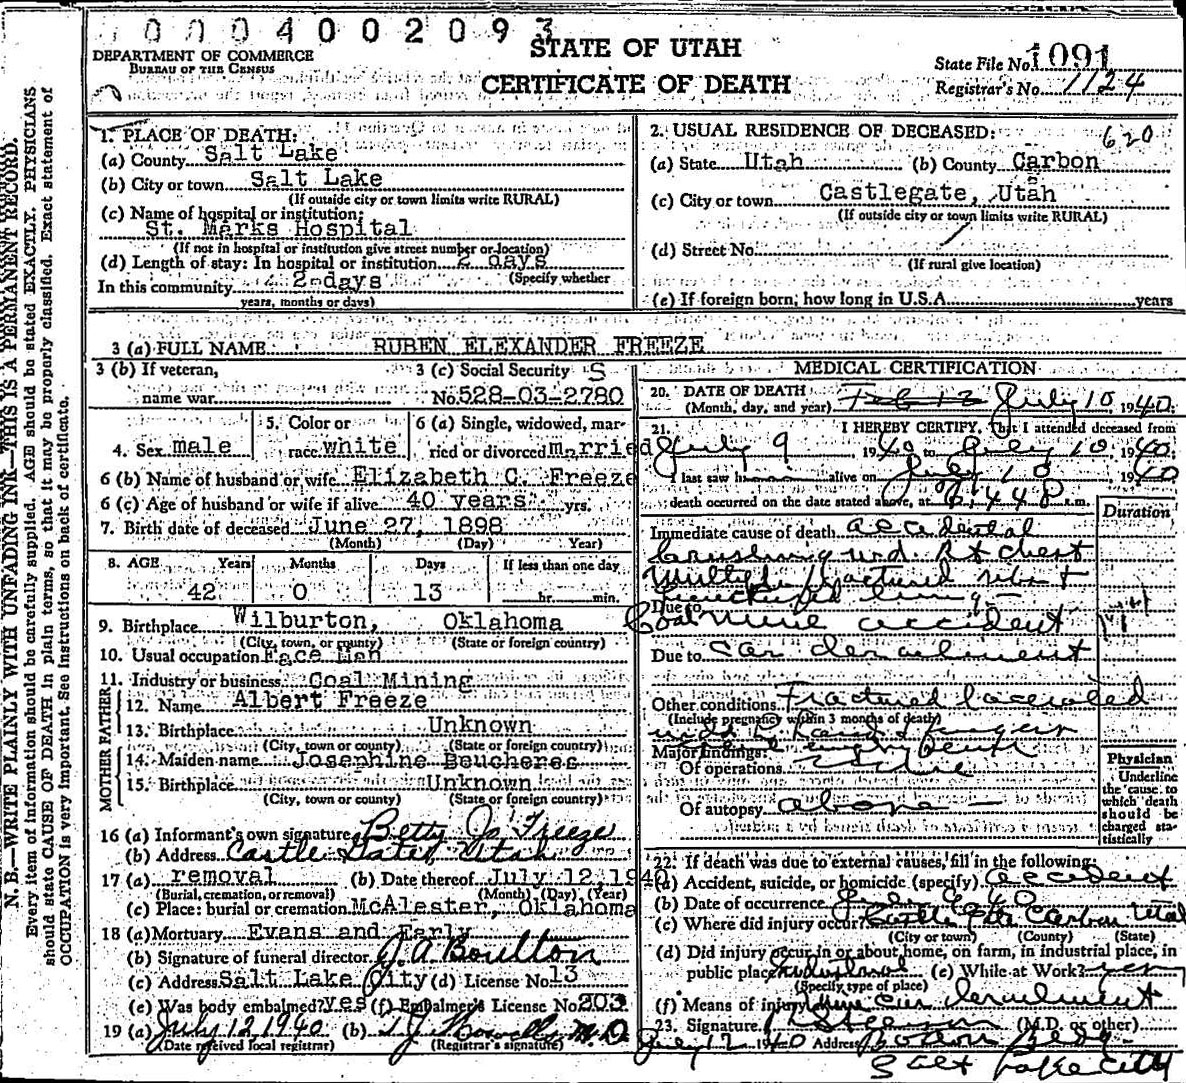 0 0 0 4 0 0 2 0 9 3
DEPARTMENT OF COMMERCE
BUREAU OF THE CENSUS
STATE OF UTAH
CERTIFICATE OF DEATH
State File No. 1091
Registrar's No. 1124
N. B.—WRITE PLAINLY WITH UNFADING INK—THIS IS A PERMANENT RECORD.
Every item of information should be carefully supplied. AGE should be stated EXACTLY. PHYSICIANS
should state CAUSE OF DEATH in plain terms, so that it may be properly classified. Exact statement of
OCCUPATION is very important. See instructions on back of certificate.
1. PLACE OF DEATH:
(a) County Salt Lake
(b) City or town Salt Lake
(If outside city or town limits write RURAL)
(c) Name of hospital or institution:
St. Marks Hospital
(If not in hospital or institution give street number or location)
(d) Length of stay: In hospital or institution 2 days
(Specify whether
In this community 2 days
years, months or days)
2. USUAL RESIDENCE OF DECEASED: 620
(a) State Utah (b) County Carbon
(c) City or town Castlegate, Utah
(If outside city or town limits write RURAL)
(d) Street No.
(If rural give location)
(e) If foreign born, how long in U.S.A. years
3 (a) FULL NAME RUBEN ELEXANDER FREEZE
3 (b) If veteran,
name war
3 (c) Social Security S
No. 528-03-2780
4. Sex male
5. Color or
race white
6 (a) Single, widowed, mar-
ried or divorced married
6 (b) Name of husband or wife Elizabeth C. Freeze
6 (c) Age of husband or wife if alive 40 years yrs.
7. Birth date of deceased June 27, 1898
(Month) (Day) Year)
8. AGE Years Months Days If less than one day
42 0 13 hr. min.
9. Birthplace Wilburton, Oklahoma
(City, town, or county) (State or foreign country)
10. Usual occupation Face Man
11. Industry or business Coal Mining
FATHER
12. Name Albert Freeze
13. Birthplace Unknown
(City, town or county) (State or foreign country)
MOTHER
14. Maiden name Josephine Beucheres
15. Birthplace Unknown
(City, town or county) (State or foreign country)
16 (a) Informant's own signature Betty Jo Freeze
(b) Address Castle Gate, Utah
17 (a) removal (b) Date thereof July 12, 1940
(Burial, cremation, or removal) (Month) (Day) (Year)
(c) Place: burial or cremation McAlester, Oklahoma
18 (a) Mortuary Evans and Early
(b) Signature of funeral director J. A. Boulton
(c) Address Salt Lake City (d) License No. 13
(e) Was body embalmed? yes (f) Embalmer's License No. 203
19 (a) July 12, 1940 (b) M.D.
(Date received local registrar) (Registrar's signature)
MEDICAL CERTIFICATION
20. DATE OF DEATH Feb 12 July 10, 1940
(Month, day, and year)
21. I HEREBY CERTIFY, That I attended deceased from
July 9 1940 to July 10, 1940
I last saw h alive on July 10 1940
death occurred on the date stated above, at 6:44 P m.
Duration
Immediate cause of death accidental
Crushing wd. Rt chest
Multiple fractured ribs +
punctured lung
Due to
Coal Mine accident
Due to car derailment
Other conditions Fractured lacerated
(Include pregnancy within 3 months of death)
hand + fingers
Major findings:
Of operations
Of autopsy above
Physician
Underline
the cause to
which death
should be
charged sta-
tistically
22. If death was due to external causes, fill in the following:
(a) Accident, suicide, or homicide (specify) accident
(b) Date of occurrence July 9 40
(c) Where did injury occur? Castle Gate Carbon Utah
(City or town) (County) (State)
(d) Did injury occur in or about home, on farm, in industrial place, in
public place? Industrial (e) While at Work? yes
(Specify type of place)
(f) Means of injury Mine car derailment
23. Signature (M.D. or other)
July 12 1940 Address Boston Bldg.
Salt Lake City